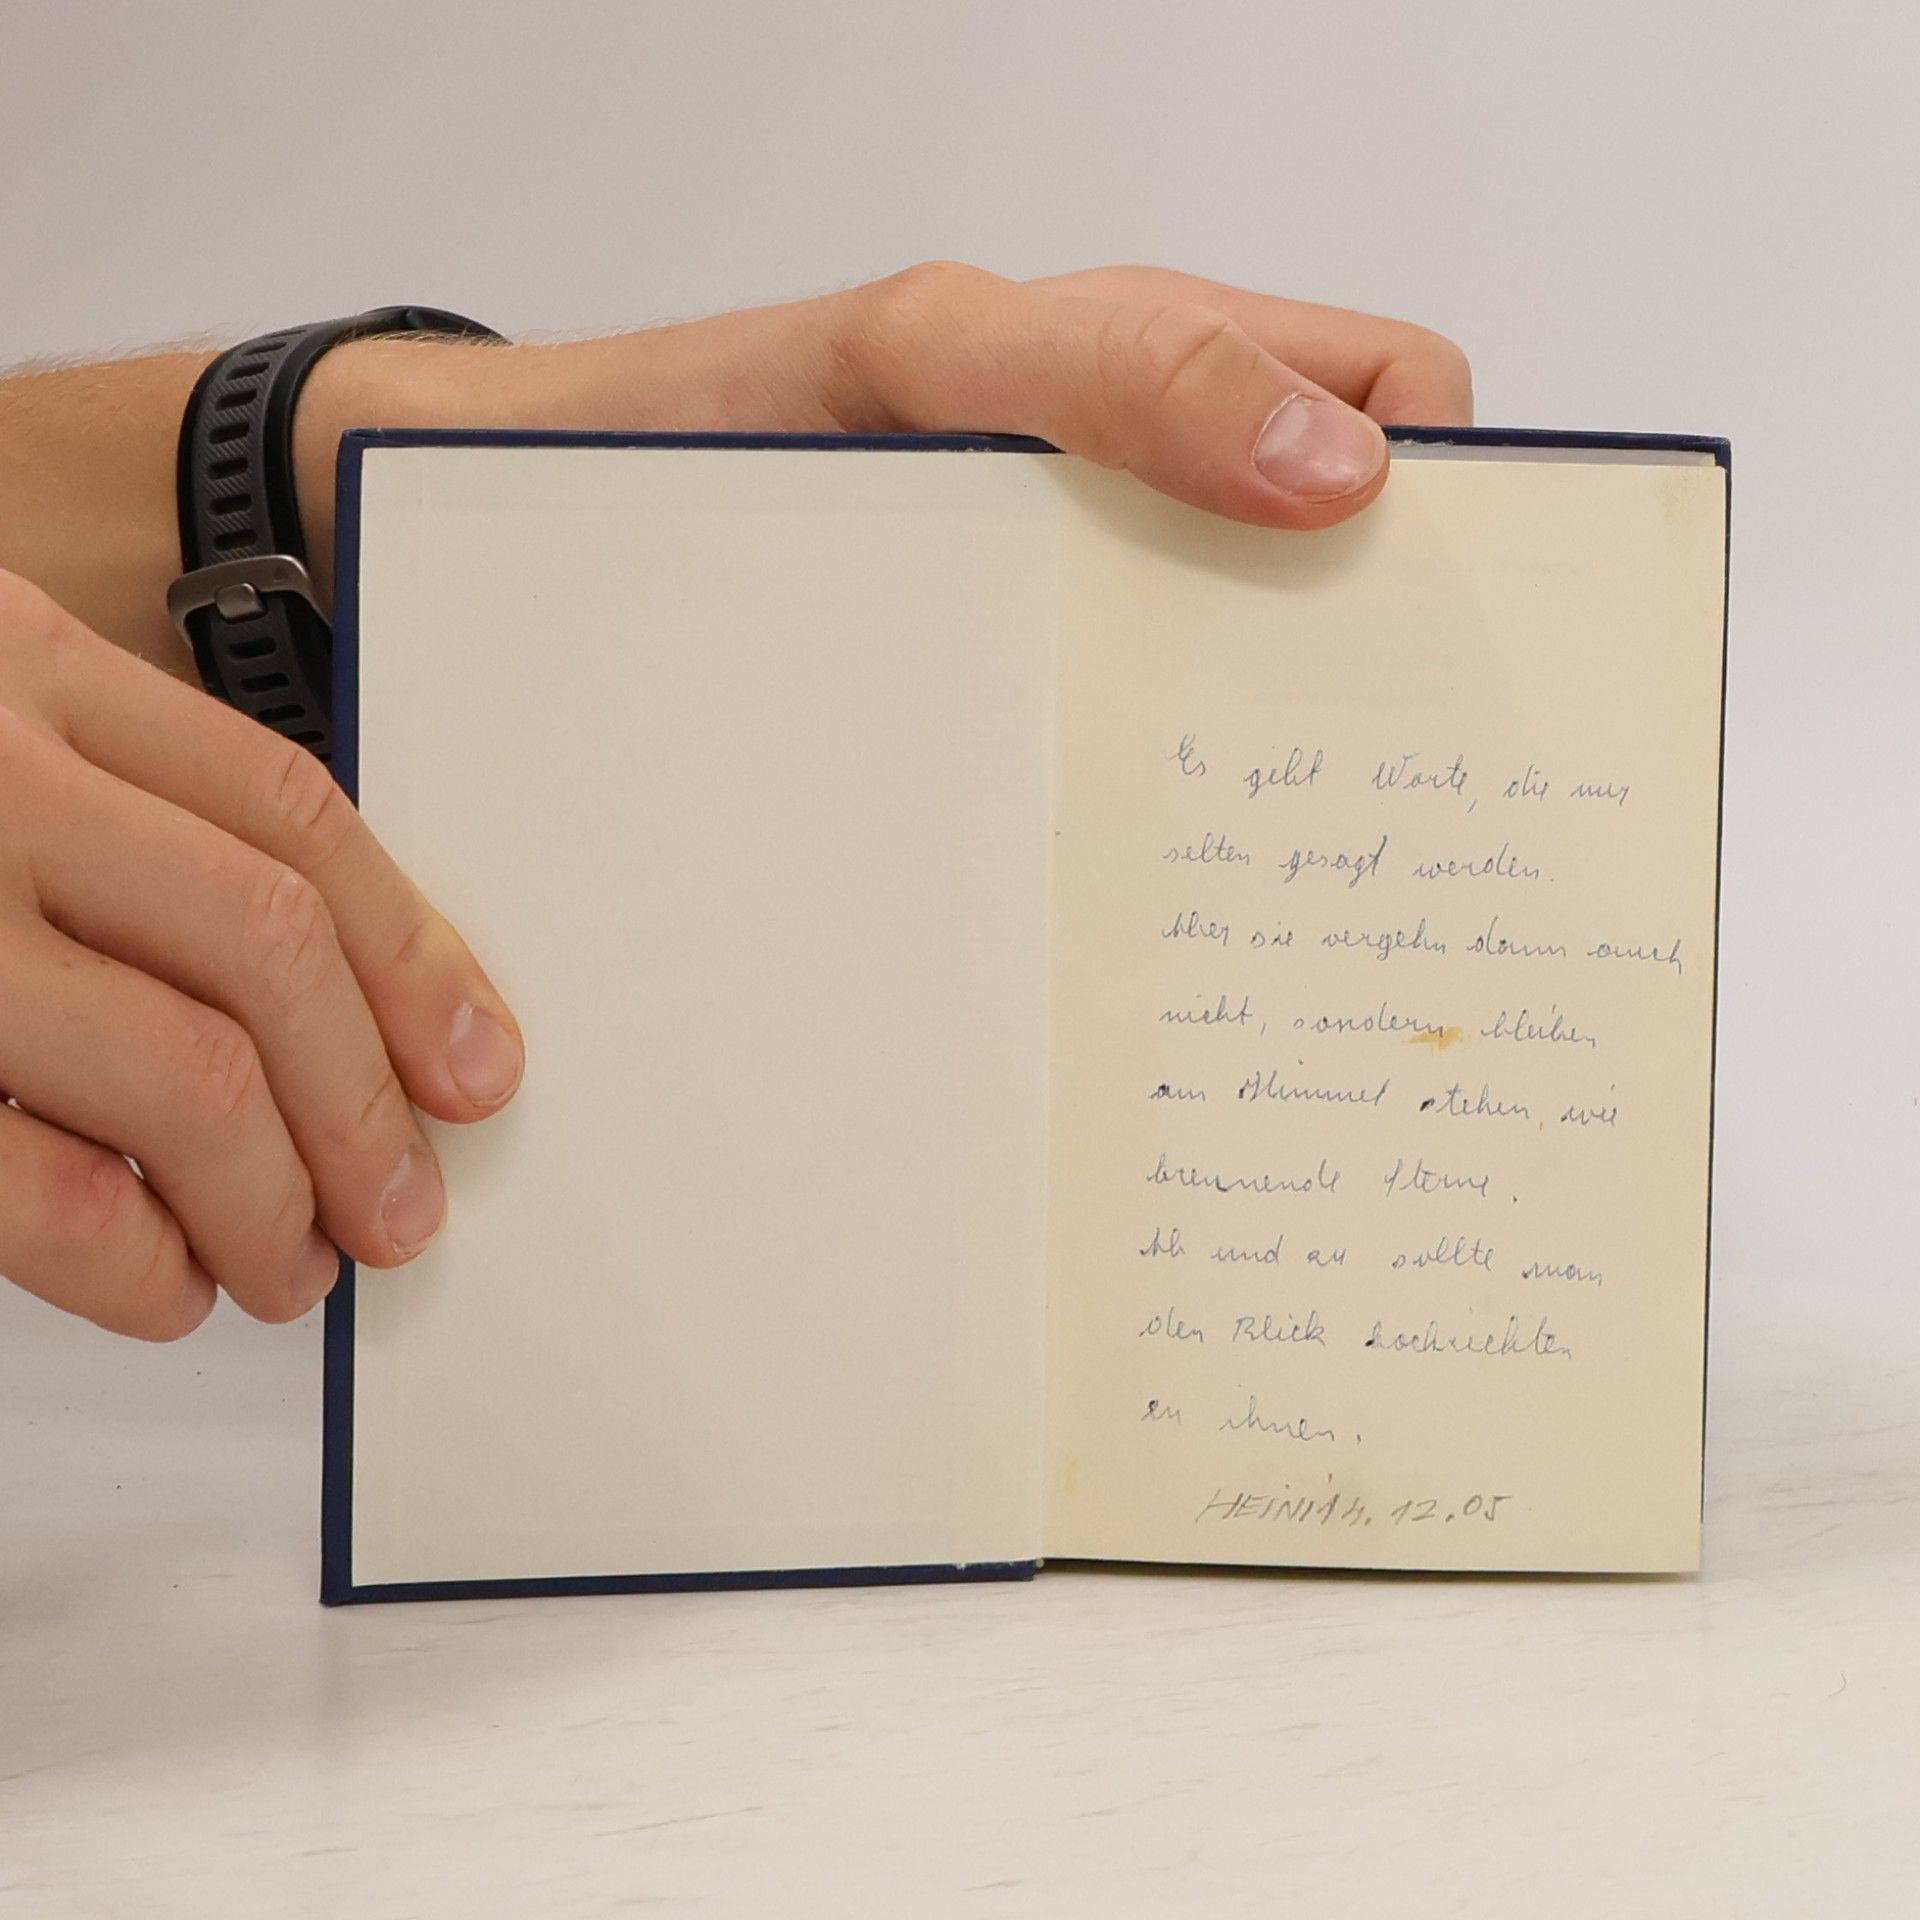 Es gibt Worte, die nur
selten gesagt werden.
Aber sie vergehn dann auch
nicht, sondern bleiben
am Himmel stehen, wie
brennende Sterne.
Ab und zu sollte man
den Blick hochrichten
zu ihnen.
HEINI 14.12.05